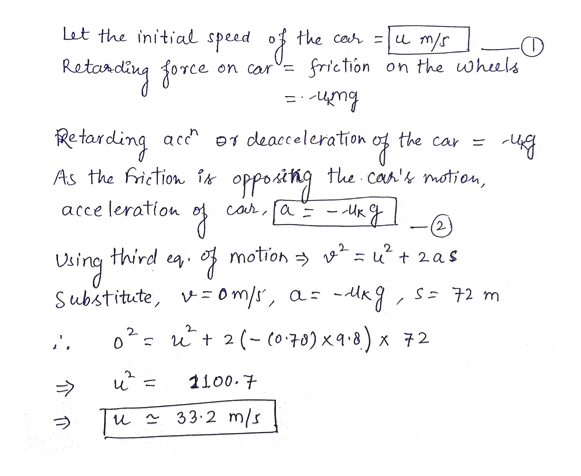 Let the initial speed of the car = u m/s —①
Retarding force on car = friction on the wheels
= -μₖmg
Retarding accⁿ or deacceleration of the car = -μₖg
As the friction is opposing the car's motion,
acceleration of car, a = -μₖg —②
Using third eq. of motion ⇒ v² = u² + 2as
Substitute, v = 0 m/s, a = -μₖg, s = 72 m
∴ 0² = u² + 2(-(0.78)×9.8) × 72
⇒ u² = 1100.7
⇒ u ≃ 33.2 m/s